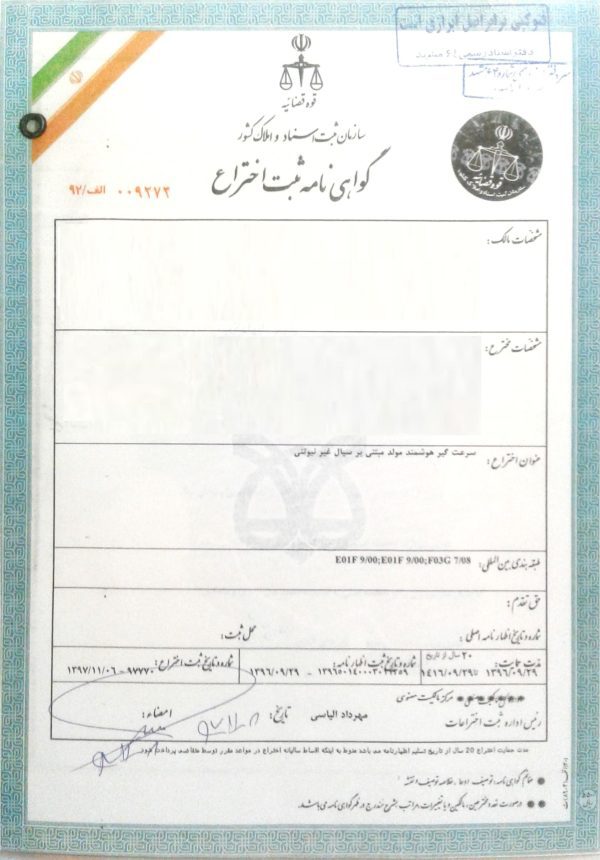 فتوکپی برابر اصل ابرازی است
دفتر اسناد رسمی ۶۱ مشهد
قوه قضائیه
سازمان ثبت اسناد و املاک کشور
گواهی نامه ثبت اختراع
قوه قضائیه
۰۰۹۲۷۲ الف/۹۲
مشخصات مالک:
مشخصات مخترع:
عنوان اختراع: سرعت گیر هوشمند مولد مبتنی بر سیال غیر نیوتنی
طبقه بندی بین المللی: E01F 9/00;E01F 9/00;F03G 7/08
حق تقدم:
شماره و تاریخ اظهارنامه اصلی: محل ثبت:
مدت حمایت: ۲۰ سال از تاریخ
۱۳۹۶/۰۹/۲۹ تا ۱۴۱۶/۰۹/۲۹
شماره و تاریخ ثبت اظهارنامه: ۱۳۹۶/۰۹/۲۹
شماره و تاریخ ثبت اختراع: ۹۷۷۷۰ - ۱۳۹۷/۱۱/۰۶
مرکز مالکیت معنوی
رئیس اداره ثبت اختراعات مهرداد الیاسی تاریخ: امضاء:
مدت حمایت اختراع 20 سال از تاریخ تسلیم اظهارنامه می باشد منوط به اینکه اقساط سالیانه اختراع در مواعد مقرر توسط متقاضی پرداخت شود.
ضمائم گواهی نامه، توصیف، ادعا، خلاصه توصیف و نقشه
در صورت تعدد مخترعین، مالکین و یا تغییرات، مراتب بشرح مندرج در ظهر گواهی نامه می باشد.